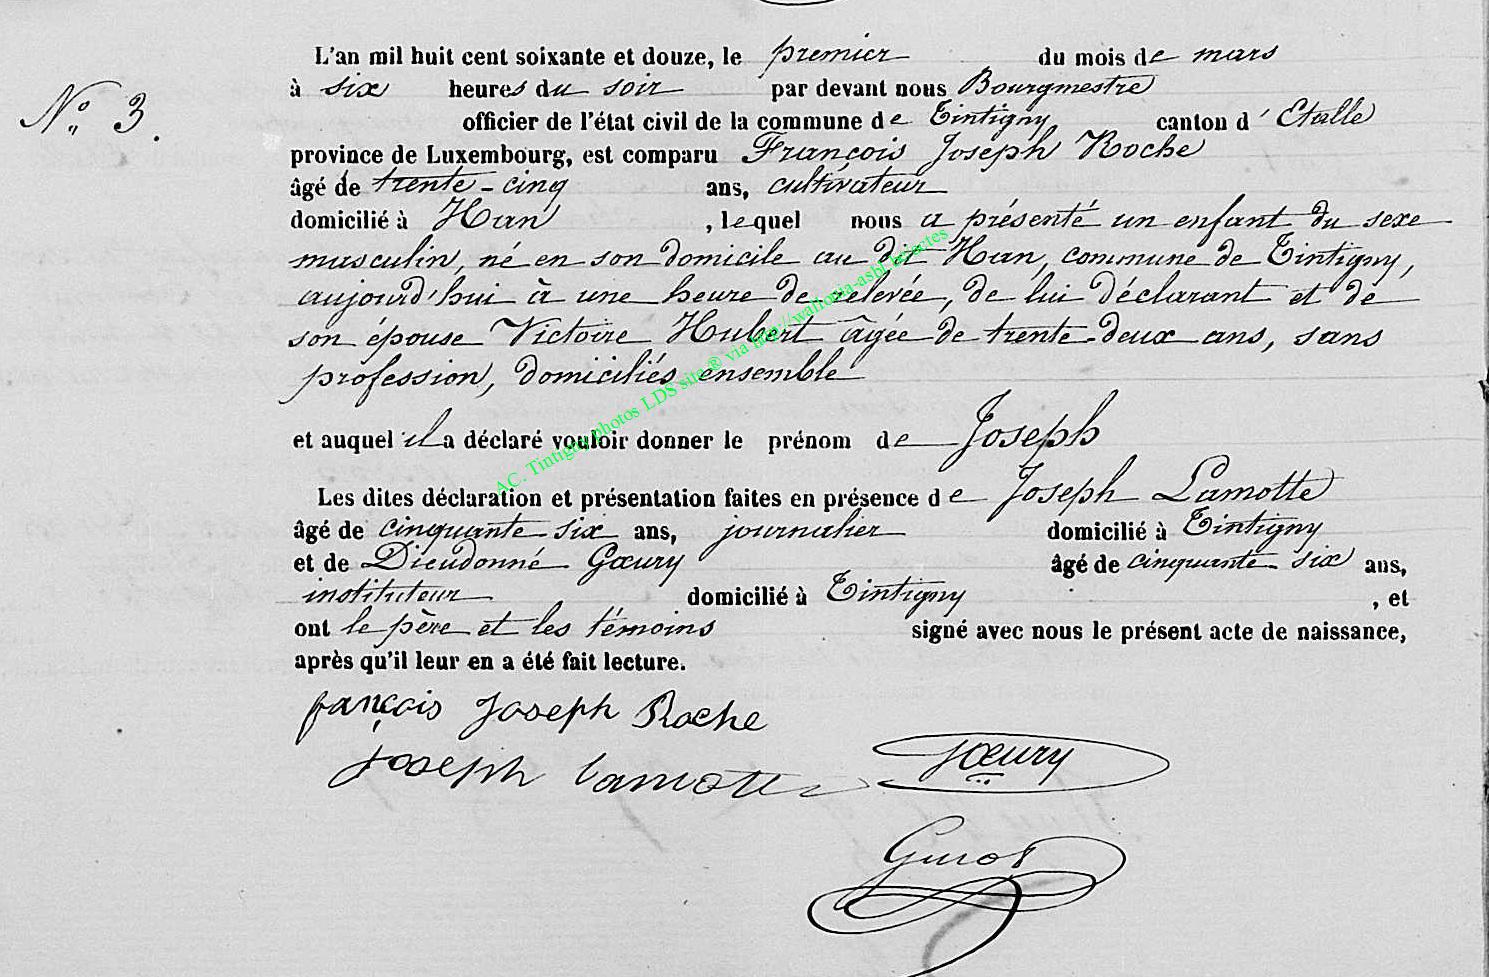 L'an mil huit cent soixante et douze, le premier du mois de mars
N° 3.
à six heures du soir par devant nous Bourgmestre
officier de l'état civil de la commune de Tintigny canton d' Etalle
province de Luxembourg, est comparu François Joseph Roche
âgé de trente-cinq ans, cultivateur
domicilié à Han, lequel nous a présenté un enfant du sexe
masculin, né en son domicile au dit Han, commune de Tintigny,
aujourd'hui à une heure de relevée, de lui déclarant et de
son épouse Victoire Hubert âgée de trente-deux ans, sans
profession, domiciliés ensemble
et auquel il a déclaré vouloir donner le prénom de Joseph
Les dites déclaration et présentation faites en présence de Joseph Lamotte
âgé de cinquante six ans, journalier domicilié à Tintigny
et de Dieudonné Gœury âgé de cinquante six ans,
instituteur domicilié à Tintigny, et
ont le père et les témoins signé avec nous le présent acte de naissance,
après qu'il leur en a été fait lecture.
françois Joseph Roche
Joseph Lamotte Gœury
AC. Tintigny photos LDS site ® via http://wallonia-asbl.be/actes